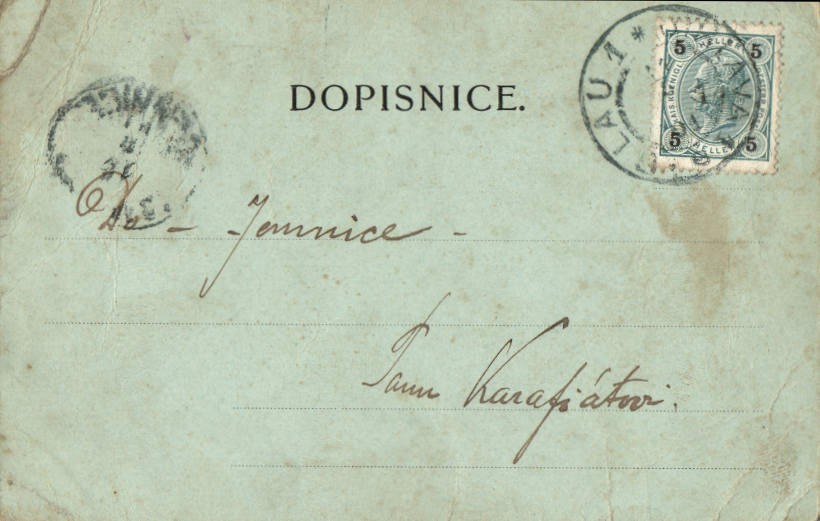 DOPISNICE.
LAU 1 *
5 HELLER 5
5 HELLER 5
Do - Jemnice -
Panu Karafiátovi.